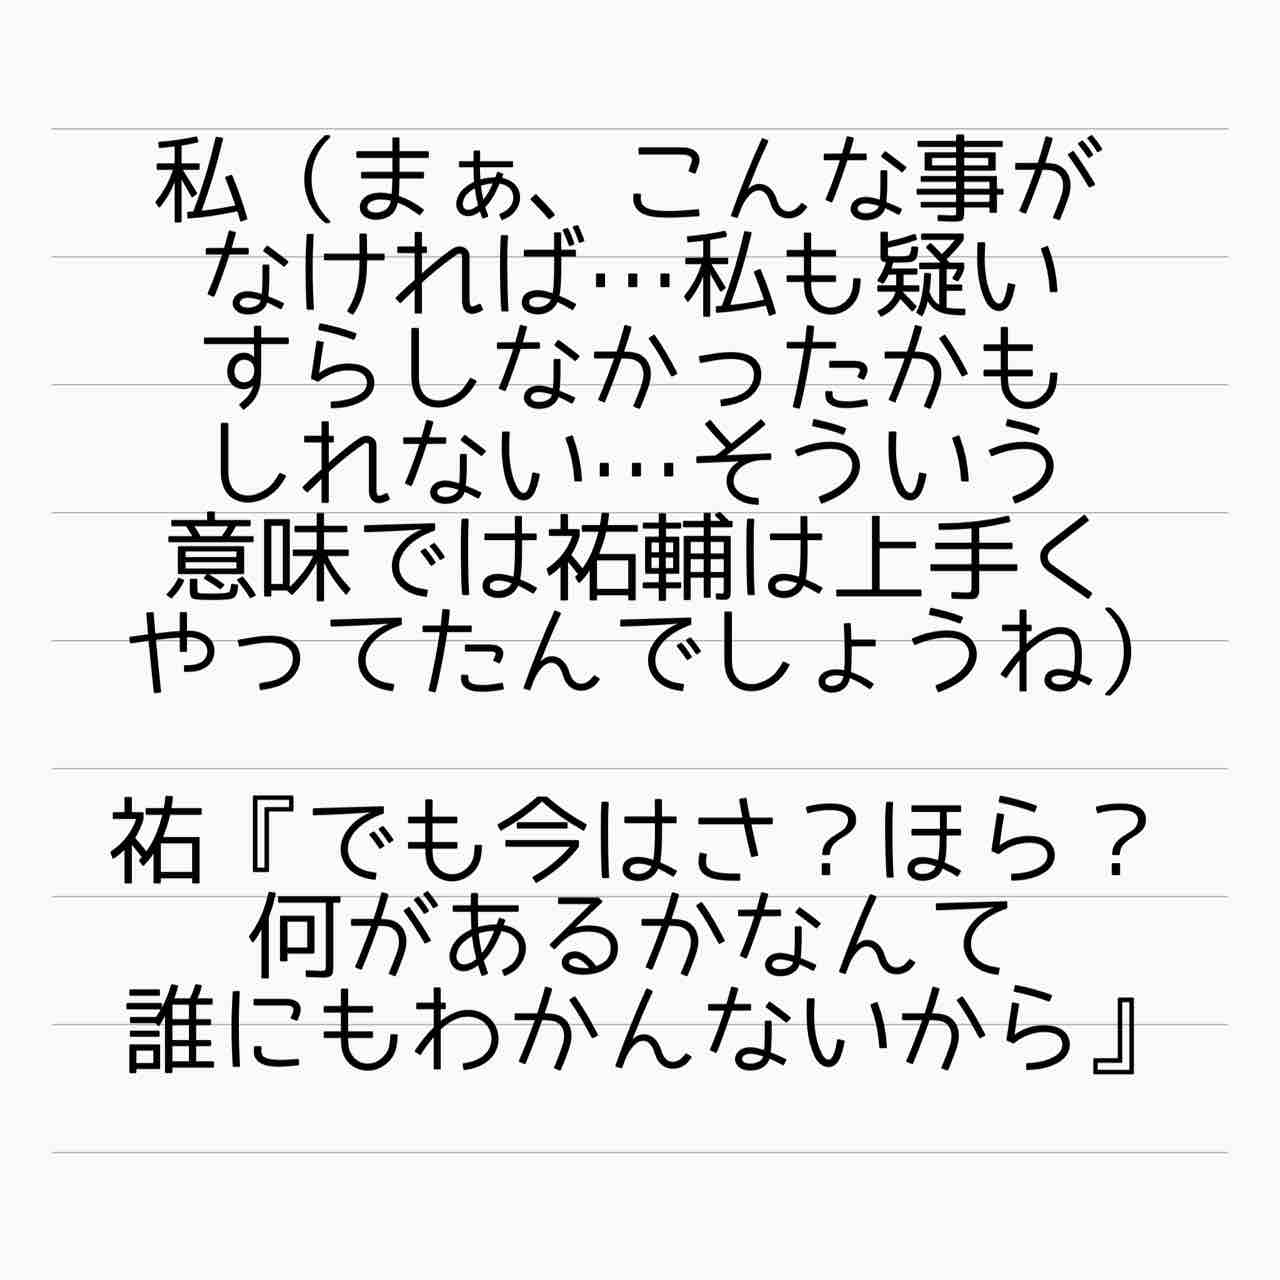 私（まぁ、こんな事が
なければ…私も疑い
すらしなかったかも
しれない…そういう
意味では祐輔は上手く
やってたんでしょうね）
祐『でも今はさ？ほら？
何があるかなんて
誰にもわかんないから』